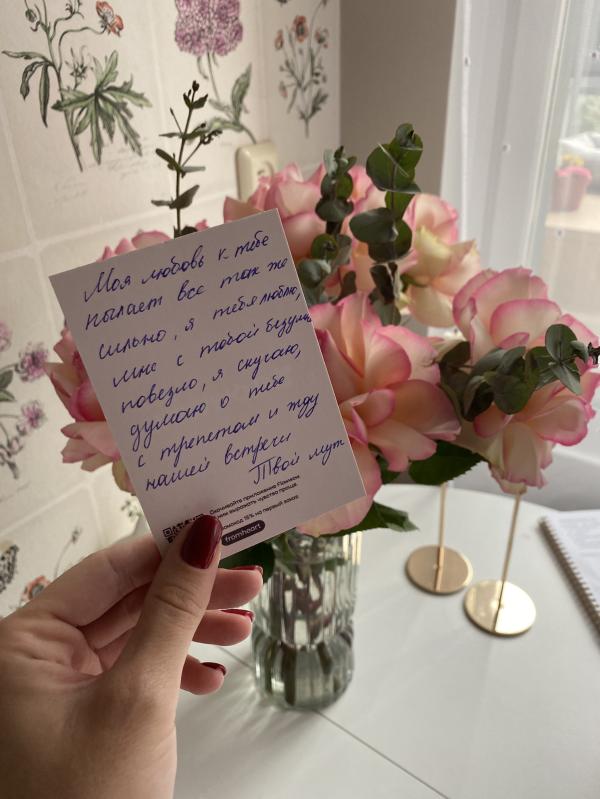 Моя любовь к тебе
пылает все так же
сильно, я тебя люблю,
мне с тобой безумно
повезло, я скучаю,
думаю о тебе
с трепетом и жду
нашей встречи
Твой муж
Скачивайте приложение Помним,
с ним выражать чувства проще.
Промокод 15% на первый заказ:
fromheart